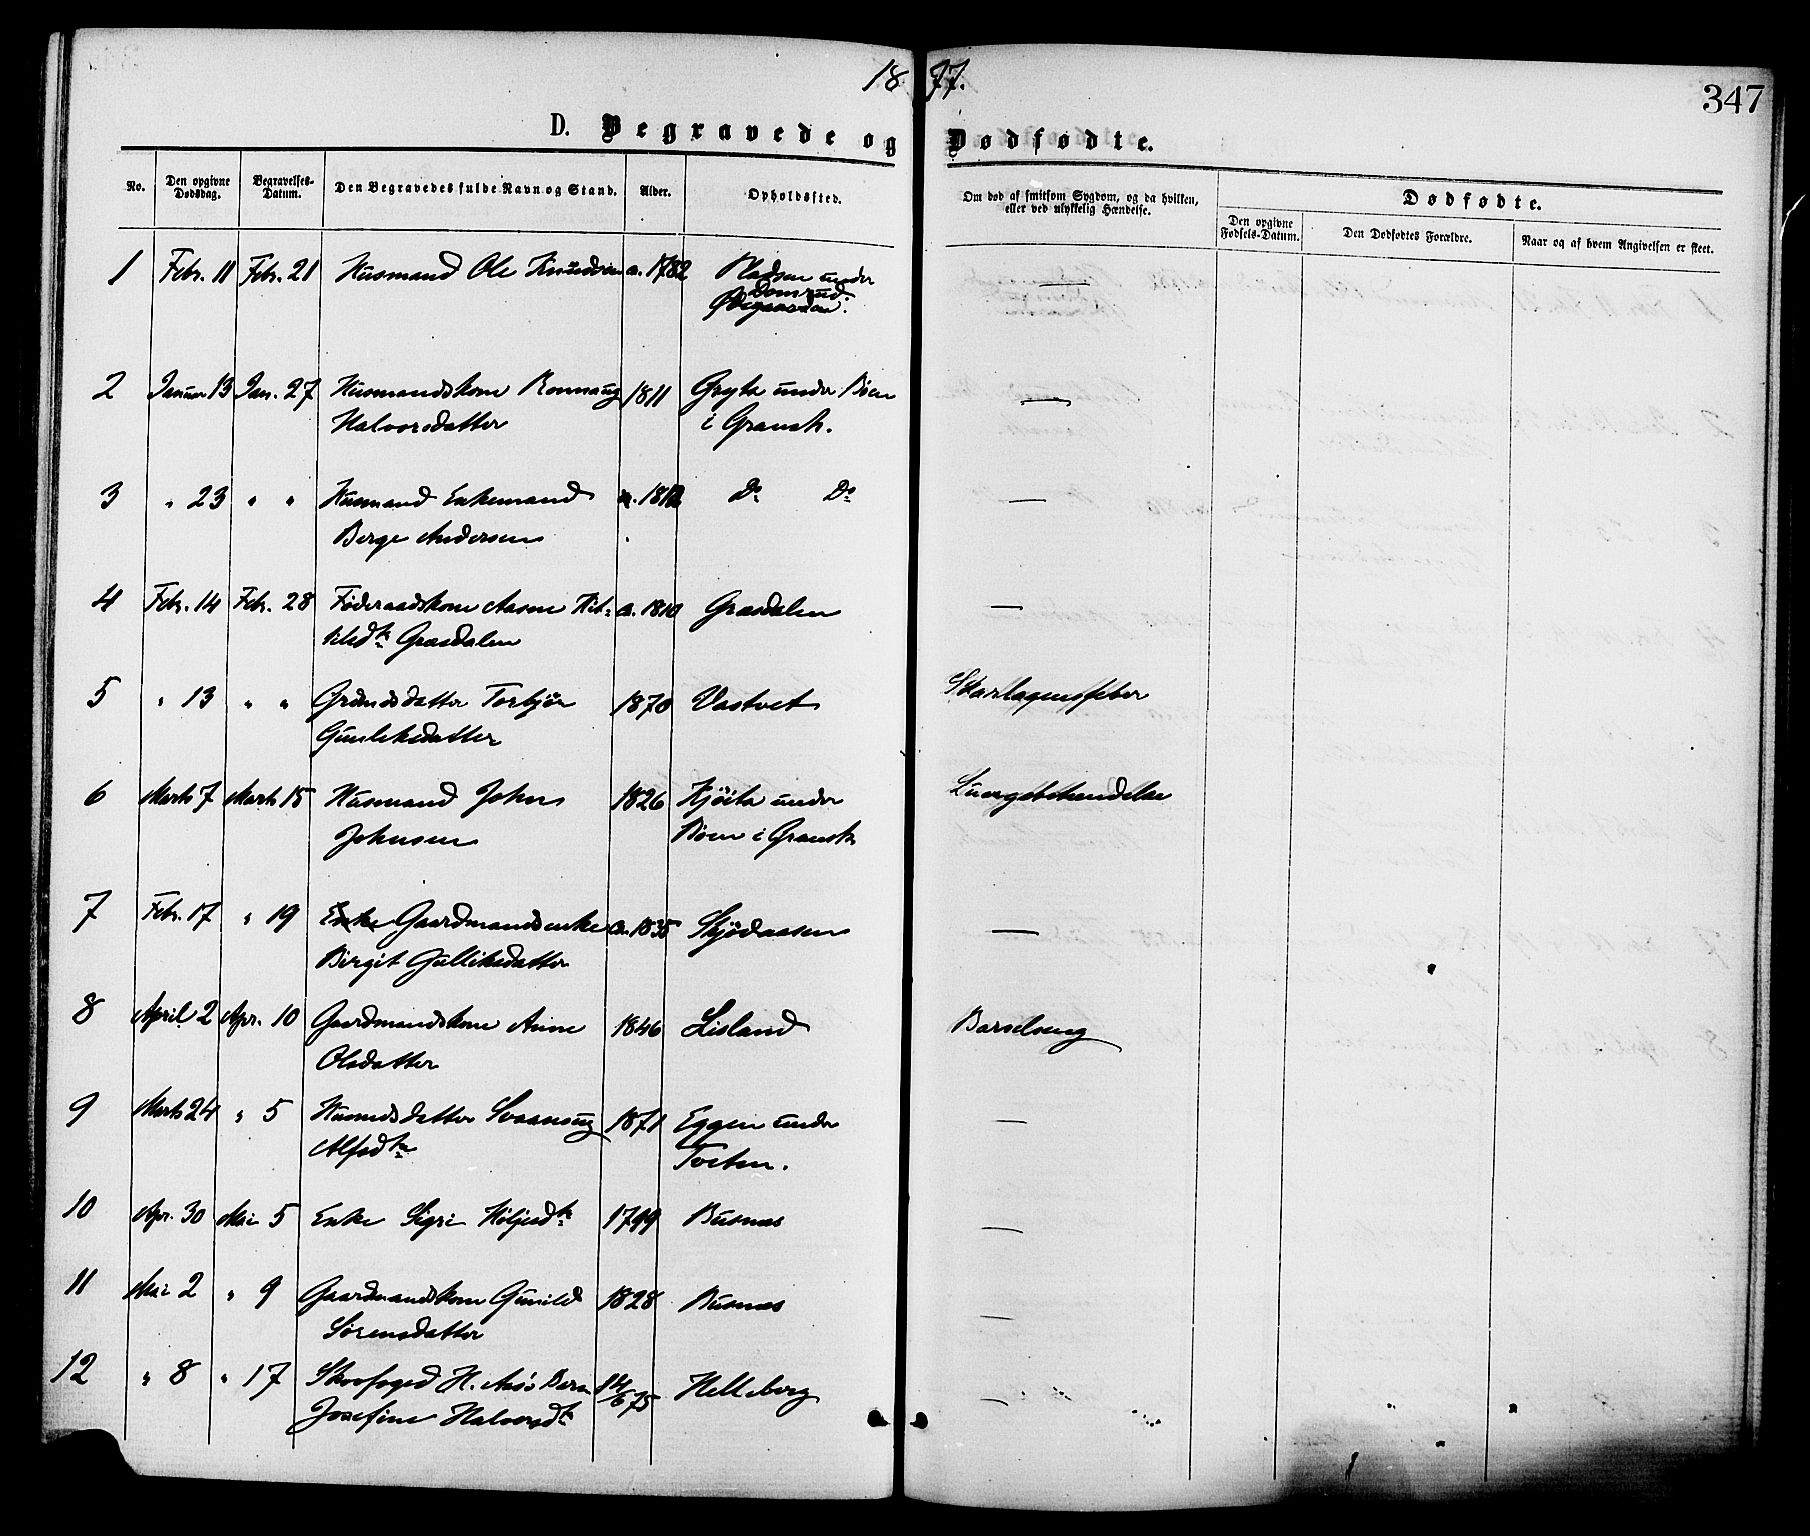 1877.
347
D. Begravede og Dødfødte.
No. Den opgivne Dødsdag. Begravelses-Datum. Den Begravedes fulde Navn og Stand. Alder. Opholdssted. Om død af smitsom Sygdom, og da hvilken, eller ved ulykkelig Hændelse. Dødfødte.
Den opgivne Fødsels-Datum. Den Dødfødtes Forældre. Naar og af hvem Angivelsen er skeet.
1 Febr. 11 Febr. 21 Husmand Ole Knudsen a. 1782 Pladsen under —
Domrud.
2 Januar 13 Jan. 27 Husmandskone Ronnaug 1811 Gryta under Böen —
Halvorsdatter i Gransh.
3 " 23 " " Husmand Enkemand a. 1812 Do Do —
Berge Andersen
4 Febr. 14 Febr. 28 Føderaadskone Aasne Kit- a. 1810 Græsdalen —
tilsdtr Græsdalen
5 " 13 " " Grdmdsdatter Torbjör 1870 Vastvet Skarlagensfeber
Gunleksdatter
6 Marts 7 Marts 15 Husmand John 1826 Kjöita under Lungebetændelse
Johnsen Böen i Gransh
7 Febr. 17 " 19 Enke Gaardmandsenke a. 1835 Skjödaasen —
Birgit Gulliksdatter
8 April 2 Apr. 10 Gaardmandskone Anne 1846 Lisland Barselseng
Olsdatter
9 Marts 24 " 5 Husmdsdatter Svanaug 1871 Eggen under —
Alfsdtr Tveten.
10 Apr. 30 Mai 5 Enke Sigri Höljesdtr 1799 Busnæs —
11 Mai 2 " 9 Gaardmandskone Gunild 1828 Busnæs —
Sörensdatter
12 " 8 " 17 Skovfoged H. Aas's Barn 14/6 75 Helleberg —
Josefine Halvorsdtr